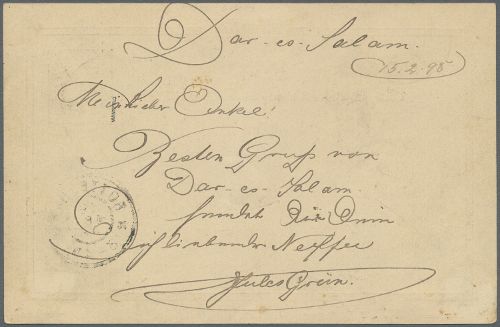 Dar-es-Salam.
15.2.98
Mein lieber Onkel!
Besten Gruß von
Dar-es-Salam
sendet Dir Dein
Dich liebender Neffe
Jules Grün.